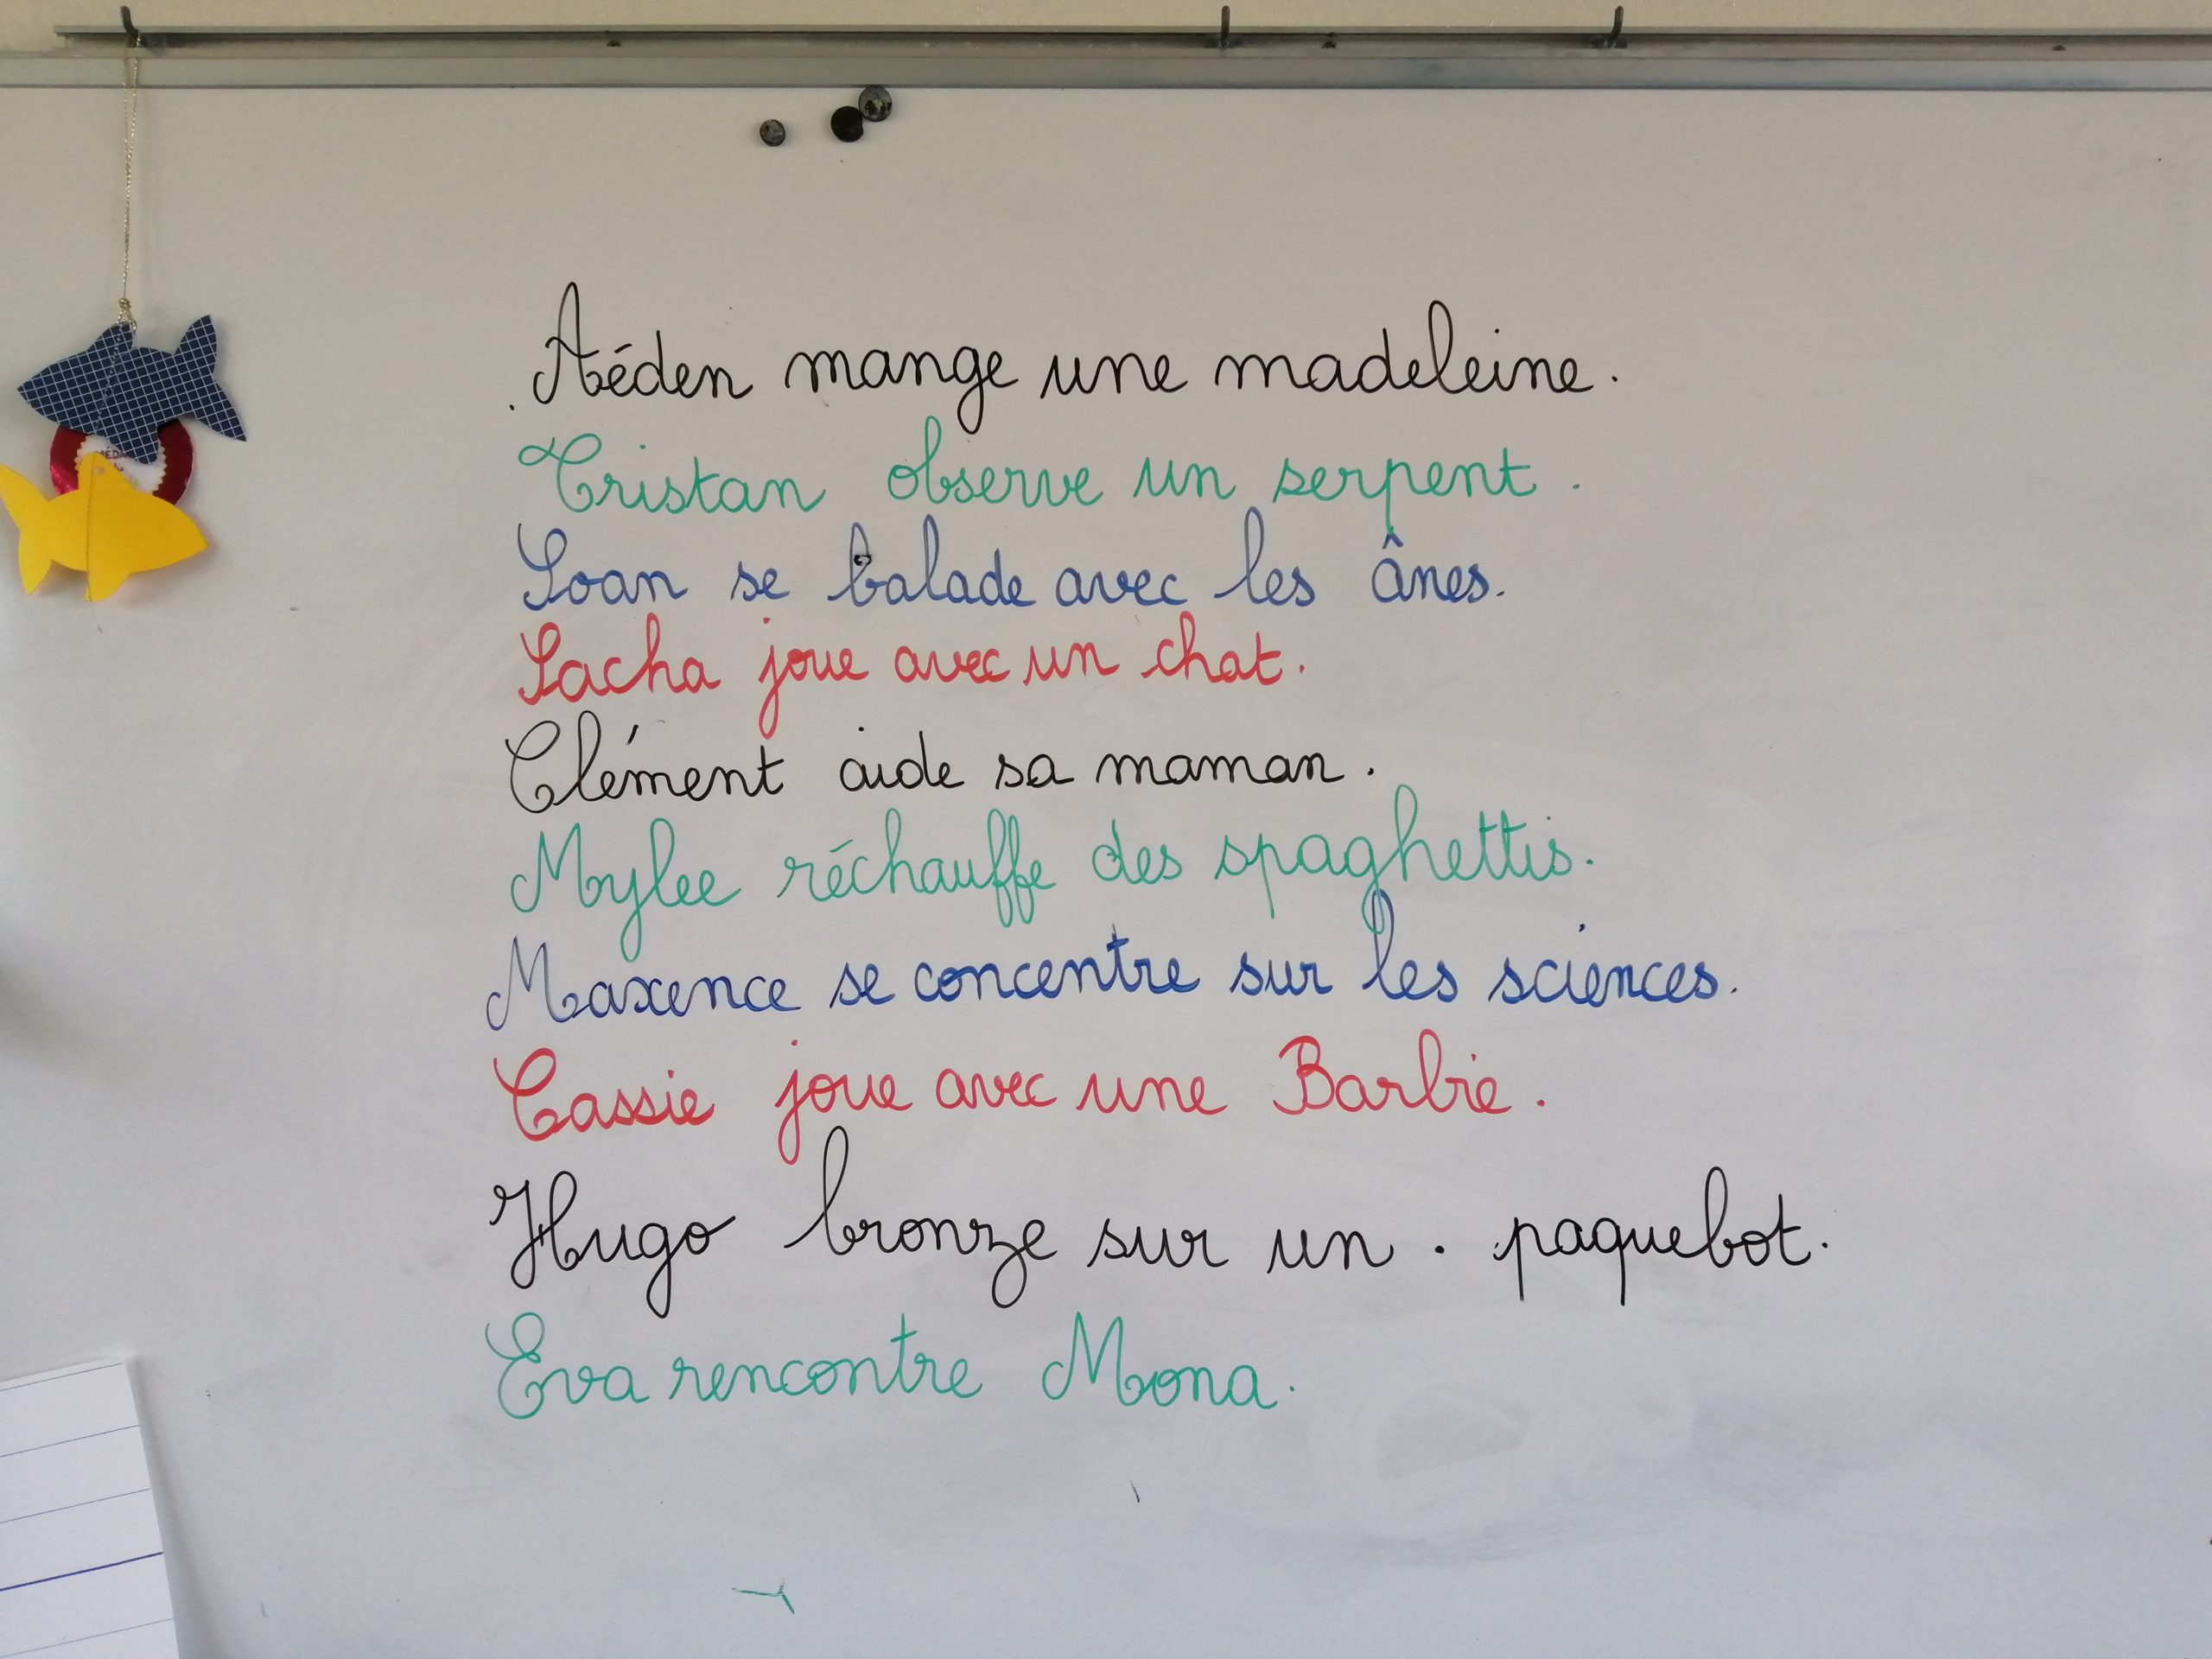 MÉDA
Aéden mange une madeleine.
Tristan observe un serpent.
Soan se balade avec les ânes.
Sacha joue avec un chat.
Clément aide sa maman.
Mylee réchauffe des spaghettis.
Maxence se concentre sur les sciences.
Cassie joue avec une Barbie.
Hugo bronze sur un . paquebot.
Eva rencontre Mona.